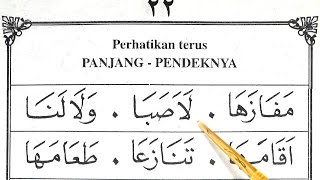 ٢٢
Perhatikan terus
PANJANG - PENDEKNYA
مَفَازَهَا . لَاَصَبَا . وَلَالَنَا
اَقَامَهَا . تَنَازَعَا . طَعَامَهَا